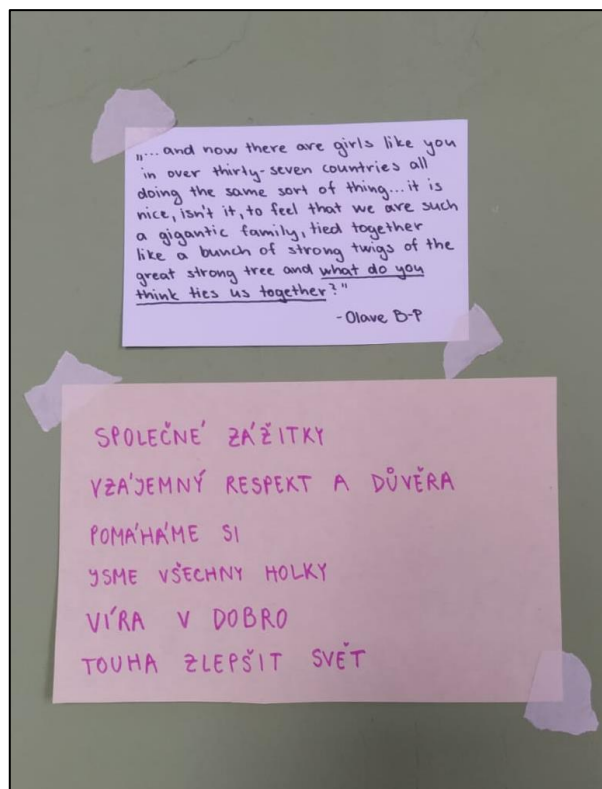 „... and now there are girls like you
in over thirty-seven countries all
doing the same sort of thing... it is
nice, isn't it, to feel that we are such
a gigantic family, tied together
like a bunch of strong twigs of the
great strong tree and what do you
think ties us together?"
- Olave B-P
SPOLEČNÉ ZÁŽITKY
VZÁJEMNÝ RESPEKT A DŮVĚRA
POMÁHÁME SI
JSME VŠECHNY HOLKY
VÍRA V DOBRO
TOUHA ZLEPŠIT SVĚT